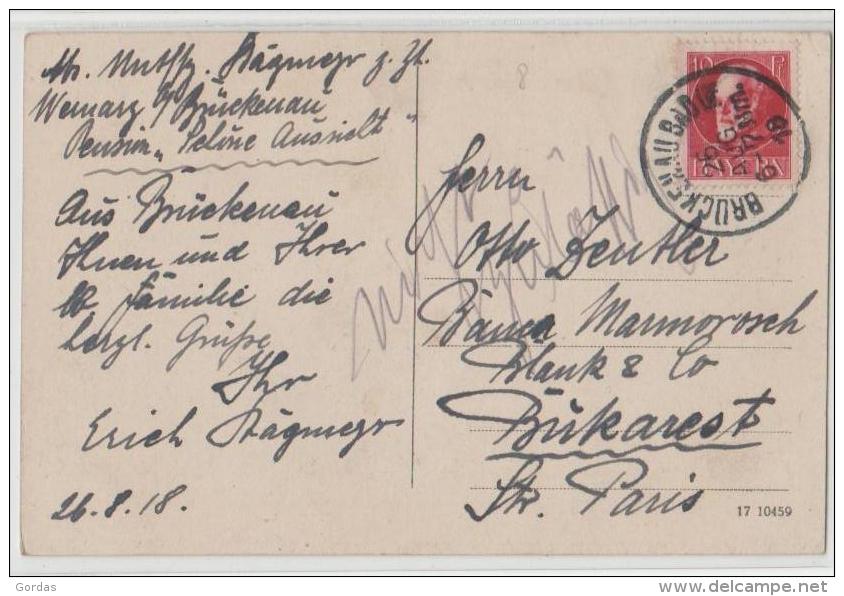 z. Zt.
Wernarz b/ Brückenau
Pension „Schöne Aussicht"
Aus Brückenau
Ihnen und Ihrer
Familie die
herzl. Grüße
Ihr
Erich
26.8.18.
Herrn
Otto
Banca Marmorosch
Blank & Co
Bukarest
Str. Paris
10 Pf
BAYERN
BRÜCKENAU BAD
26 AUG
17 10459
Gordas
www.delcampe.net